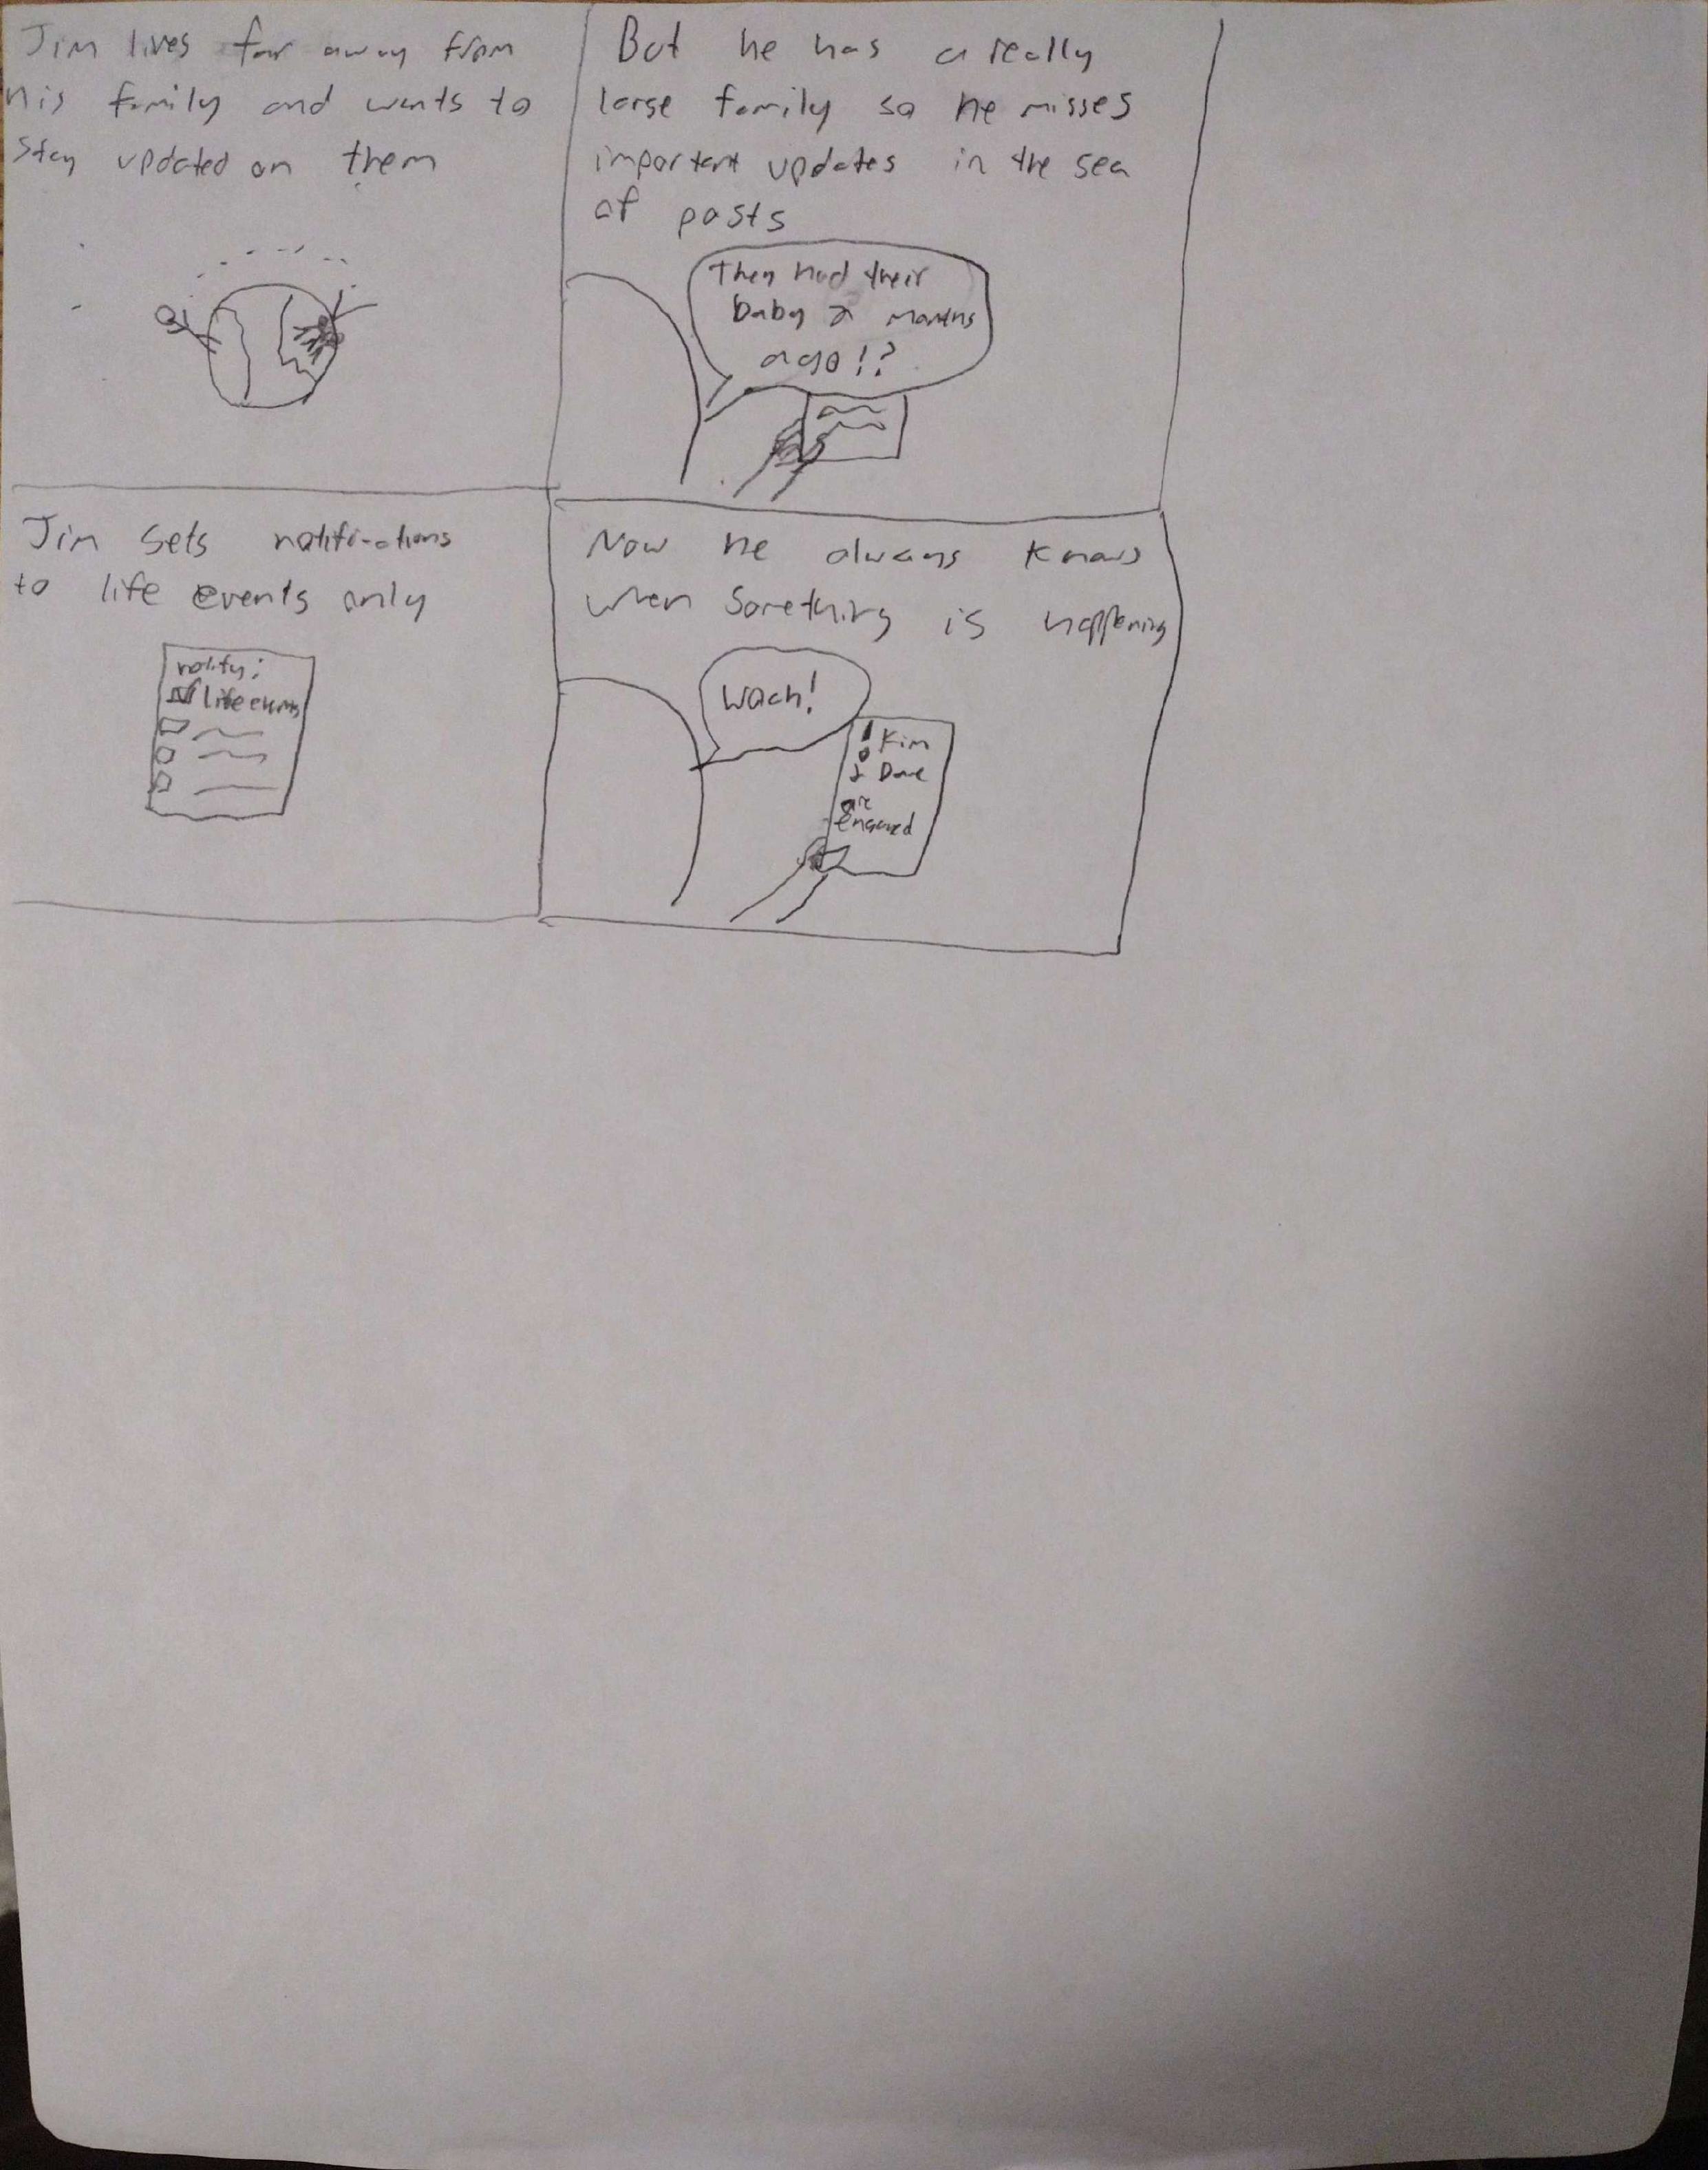 Jim lives far away from
his family and wants to
stay updated on them
But he has a really
large family so he misses
important updates in the sea
of posts
They had their
baby 2 months
ago!?
Jim sets notifications
to life events only
notify:
life events
Now he always knows
when something is happening
Woah!
! Kim
& Dave
are
engaged